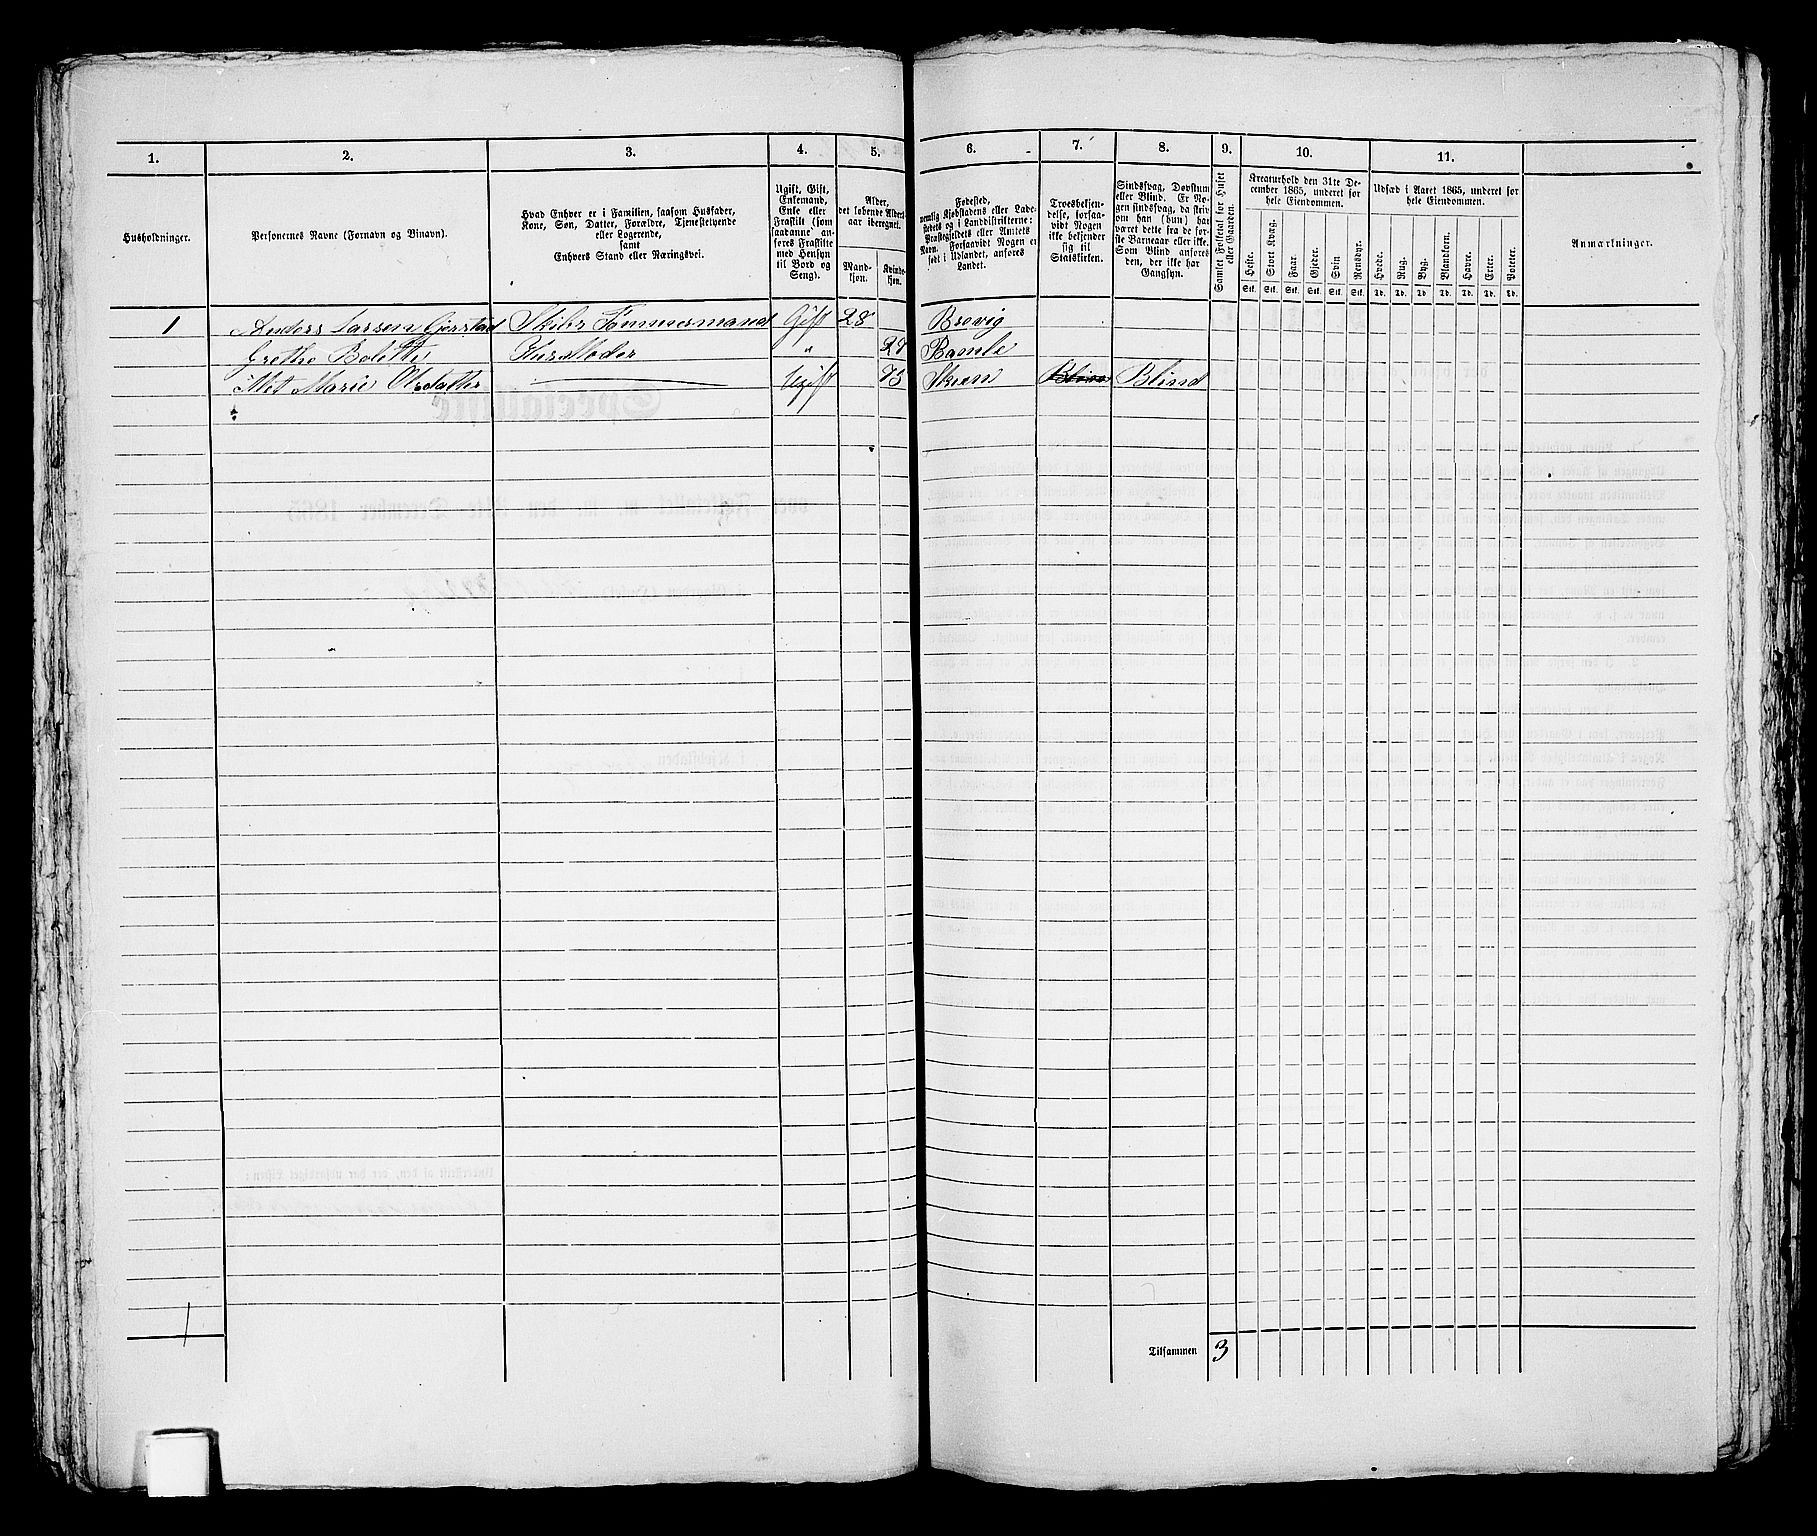 1. 2. 3. 4. 5. 6. 7. 8. 9. 10. 11.
Husholdninger.
Personernes Navne (Fornavn og Tilnavn).
Hvad Enhver er i Familien, saasom Husfader,
Kone, Søn, Datter, Forældre, Tjenestetyende
eller Logerende,
samt
Enhvers Stand eller Næringsvei.
Ugift, Gift,
Enkemand,
Enke eller
Fraskilt (som
saadanne anføres Fraskilte
med Hensyn
til Bord og
Seng).
Alder,
det løbende Aldersaar iberegnet.
Mandkjøn.
Kvindekjøn.
Fødested,
nemlig Kjøbstadens eller Ladestedets og i Landdistrikterne:
Præstegjeldets eller Amtets
Navn. Forsaavidt Nogen er
født i Udlandet, anføres
Landet.
Troesbekjendelse, forsaavidt Nogen
ikke bekjender
sig til
Statskirken.
Sindssvag, Døvstum
eller Blind. Er Nogen sindssvag, da skriv
om han (hun) har
været dette fra de første Barneaar eller ikke.
Som Blind anføres
den, der ikke har
Gangsyn.
Samlet Folketal for Huset
eller Gaarden.
Kreaturhold den 31te December 1865, underet for
hele Eiendommen.
Heste. Stort Kvæg. Faar. Gjeder. Svin Rensdyr.
Stk. Stk. Stk. Stk. Stk. Stk.
Udsæd i Aaret 1865, underet for
hele Eiendommen.
Hvede. Rug. Byg. Blandkorn. Havre. Erter. Poteter.
Td. Td. Td. Td. Td. Td. Td.
Anmærkninger.
1 Anders Larsen Gjerstad Skibs Tømmermand Gift 28 Brevig
Grethe Bolette Husmoder " 27 Bamle
Met Marie Olsdatter Ugift 73 Skien Blind Blind
1
Tilsammen 3